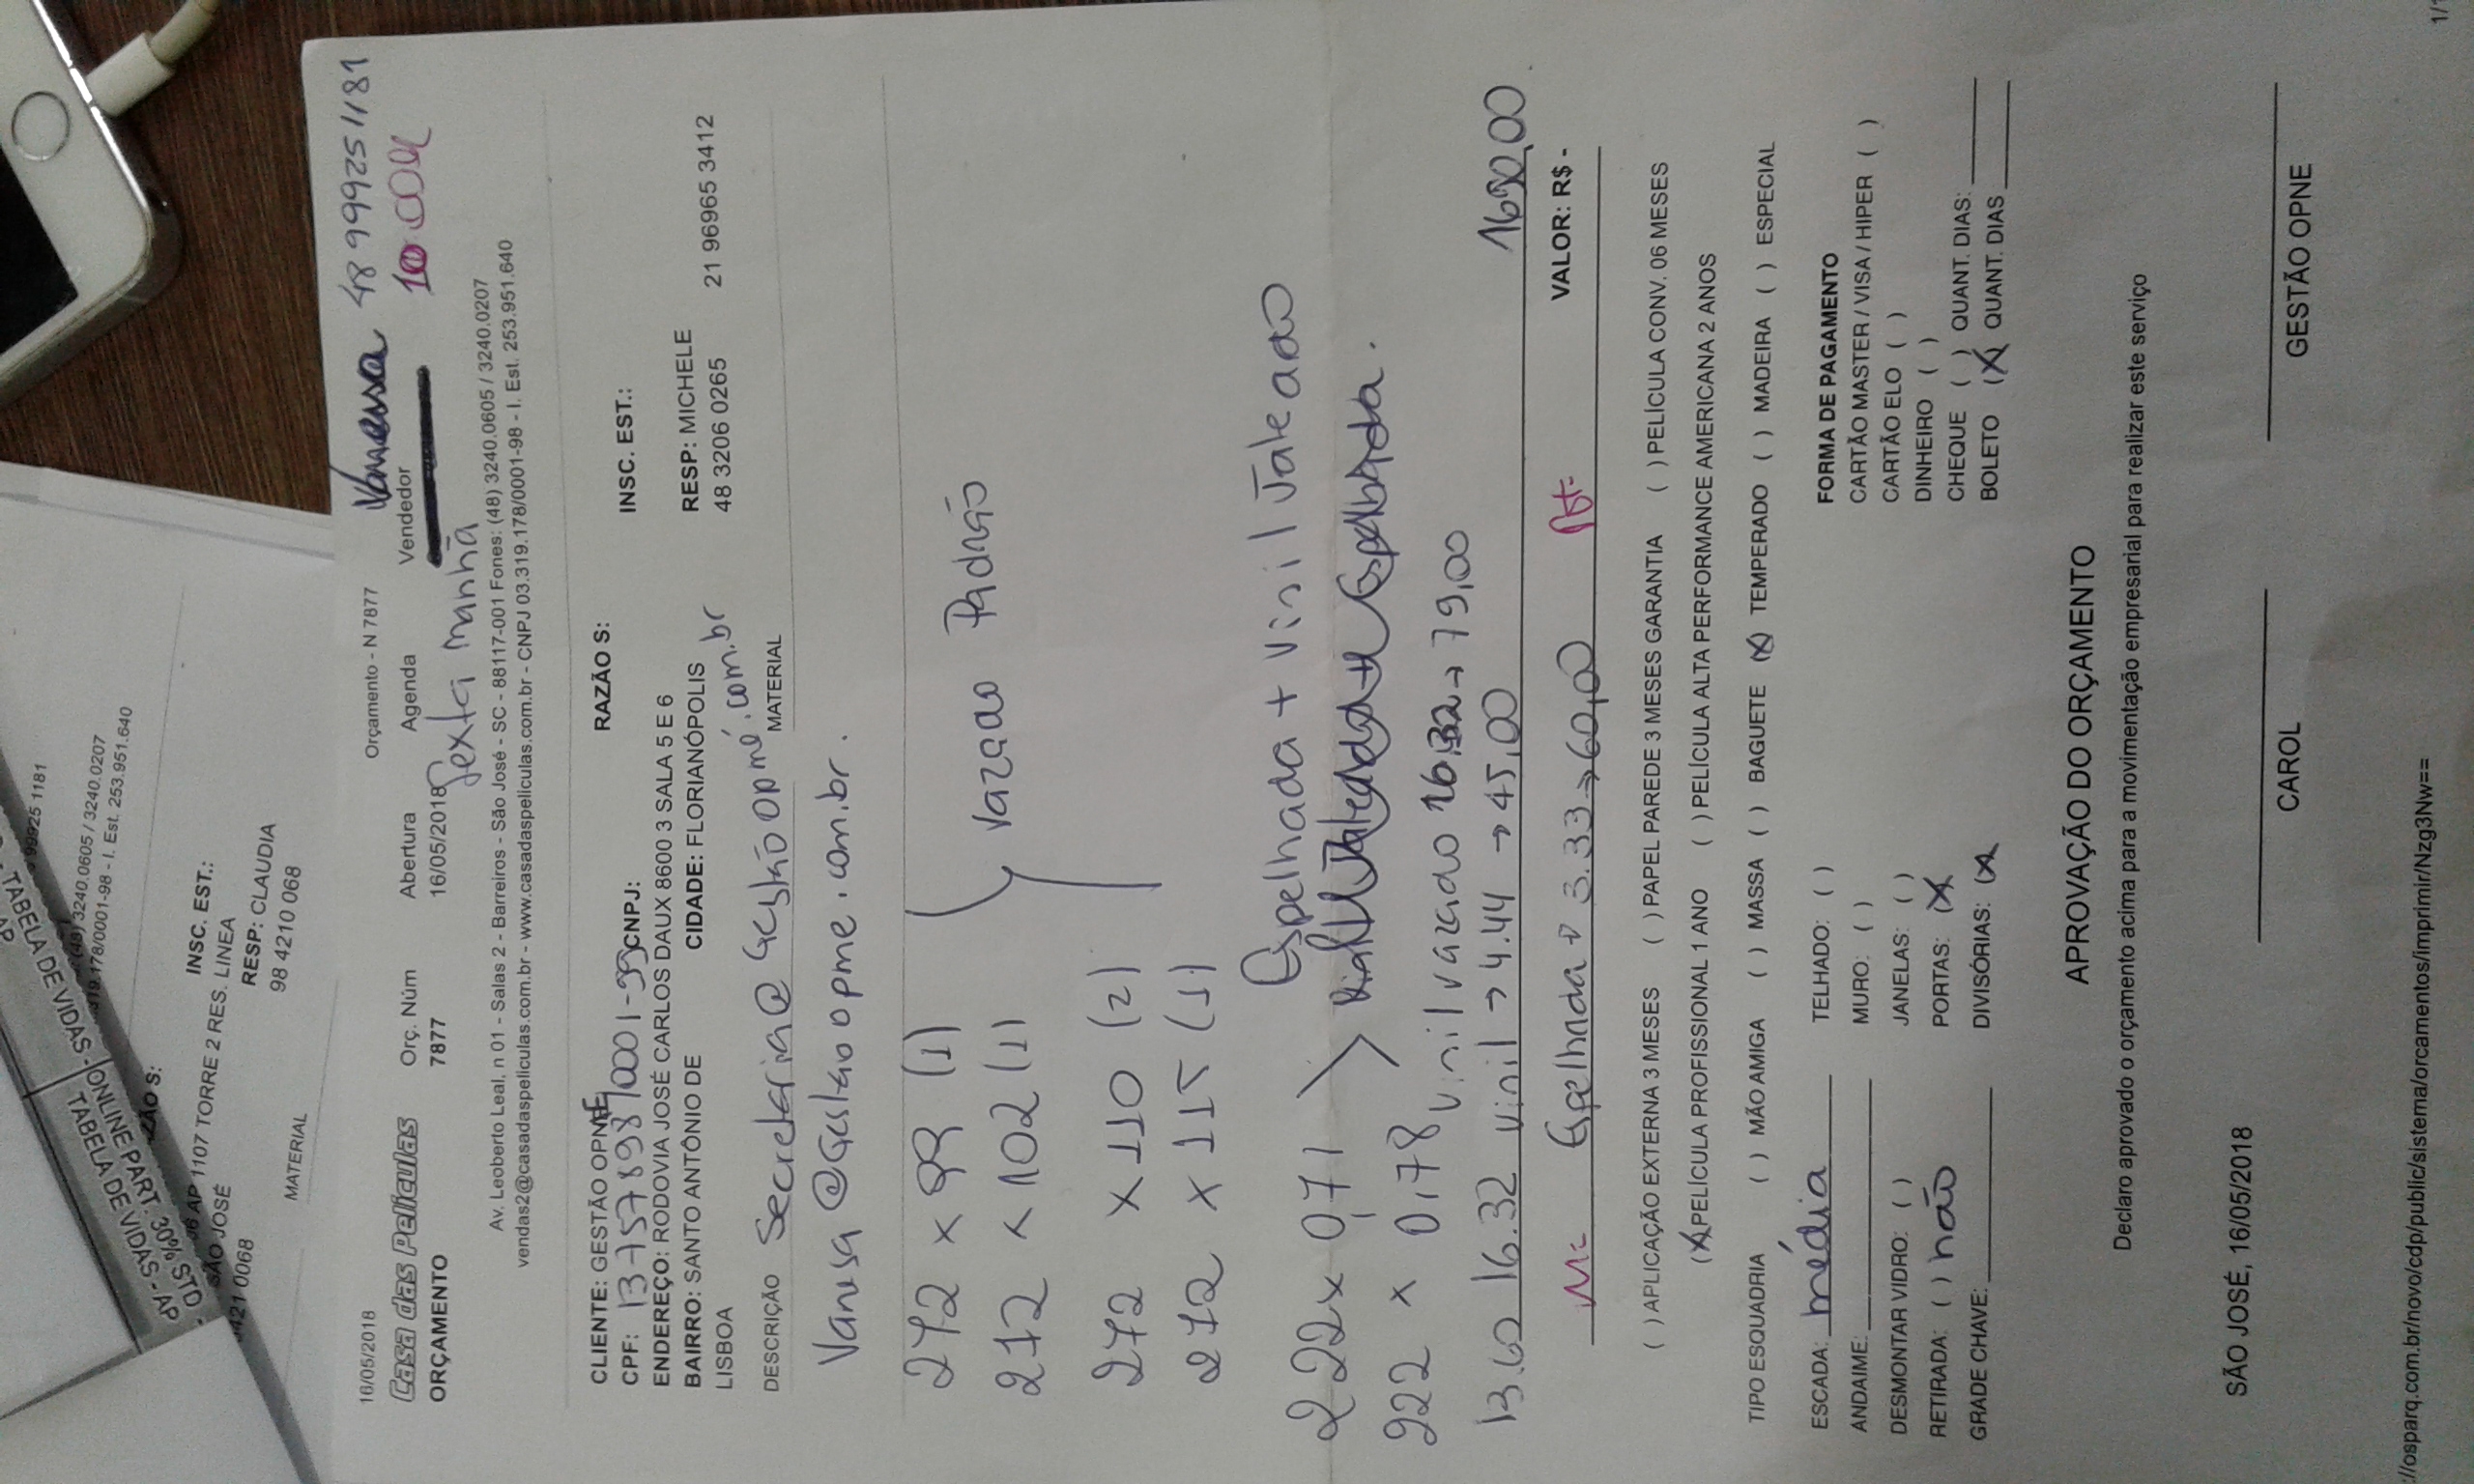 99925 1181
3240.0605 / 3240.0207
319.178/0001-98 - I. Est. 253.951.640
TABELA DE VIDAS - AP
ONLINE PART. 30% STD -
TABELA DE VIDAS - AP
ZÃO S:
INSC. EST.:
AP 1107 TORRE 2 RES. LINEA
SÃO JOSÉ
RESP: CLAUDIA
421 0068
98 4210 068
MATERIAL
16/05/2018
Orçamento - N 7877
Vanessa 48 999251181
Casa das Películas
Orç. Núm
Abertura
Agenda
Vendedor
10:00h
ORÇAMENTO
7877
16/05/2018
Sexta manhã
Av. Leoberto Leal, n 01 - Salas 2 - Barreiros - São José - SC - 88117-001 Fones: (48) 3240.0605 / 3240.0207
vendas2@casadaspeliculas.com.br - www.casadaspeliculas.com.br - CNPJ 03.319.178/0001-98 - I. Est. 253.951.640
CLIENTE: GESTÃO OPNE
RAZÃO S:
CPF: 13757898/0001-99 CNPJ:
INSC. EST.:
ENDEREÇO: RODOVIA JOSÉ CARLOS DAUX 8600 3 SALA 5 E 6
BAIRRO: SANTO ANTÔNIO DE
CIDADE: FLORIANÓPOLIS
RESP: MICHELE
LISBOA
48 3206 0265
21 96965 3412
secretaria@gestãoopme.com.br
DESCRIÇÃO
MATERIAL
Vanessa@Gestãoopme.com.br.
272 x 99 (1)
272 x 102 (1)
vazado Padrão
272 x 110 (2)
272 x 115 (1)
Espelhada + Vinil Jateado
222 x 0,71
222 x 0,78
vinil vazado 16,32 → 79,00
13.60 16.32 vinil → 4.44 → 45,00
Espelhada → 3.33 → 60,00
VALOR: R$ -
( ) APLICAÇÃO EXTERNA 3 MESES ( ) PAPEL PAREDE 3 MESES GARANTIA ( ) PELÍCULA CONV. 06 MESES
(X) PELÍCULA PROFISSIONAL 1 ANO ( ) PELÍCULA ALTA PERFORMANCE AMERICANA 2 ANOS
TIPO ESQUADRIA ( ) MÃO AMIGA ( ) MASSA ( ) BAGUETE (X) TEMPERADO ( ) MADEIRA ( ) ESPECIAL
ESCADA: média
TELHADO: ( )
FORMA DE PAGAMENTO
ANDAIME:
MURO: ( )
CARTÃO MASTER / VISA / HIPER ( )
DESMONTAR VIDRO: ( )
JANELAS: ( )
CARTÃO ELO ( )
DINHEIRO ( )
RETIRADA: ( ) não
PORTAS: (X)
CHEQUE ( ) QUANT. DIAS:
GRADE CHAVE:
DIVISÓRIAS: (X)
BOLETO (X) QUANT. DIAS
APROVAÇÃO DO ORÇAMENTO
Declaro aprovado o orçamento acima para a movimentação empresarial para realizar este serviço
SÃO JOSÉ, 16/05/2018
CAROL
GESTÃO OPNE
//osparq.com.br/novo/cdp/public/sistema/orcamentos/imprimir/Nzg3Nw==
1/1